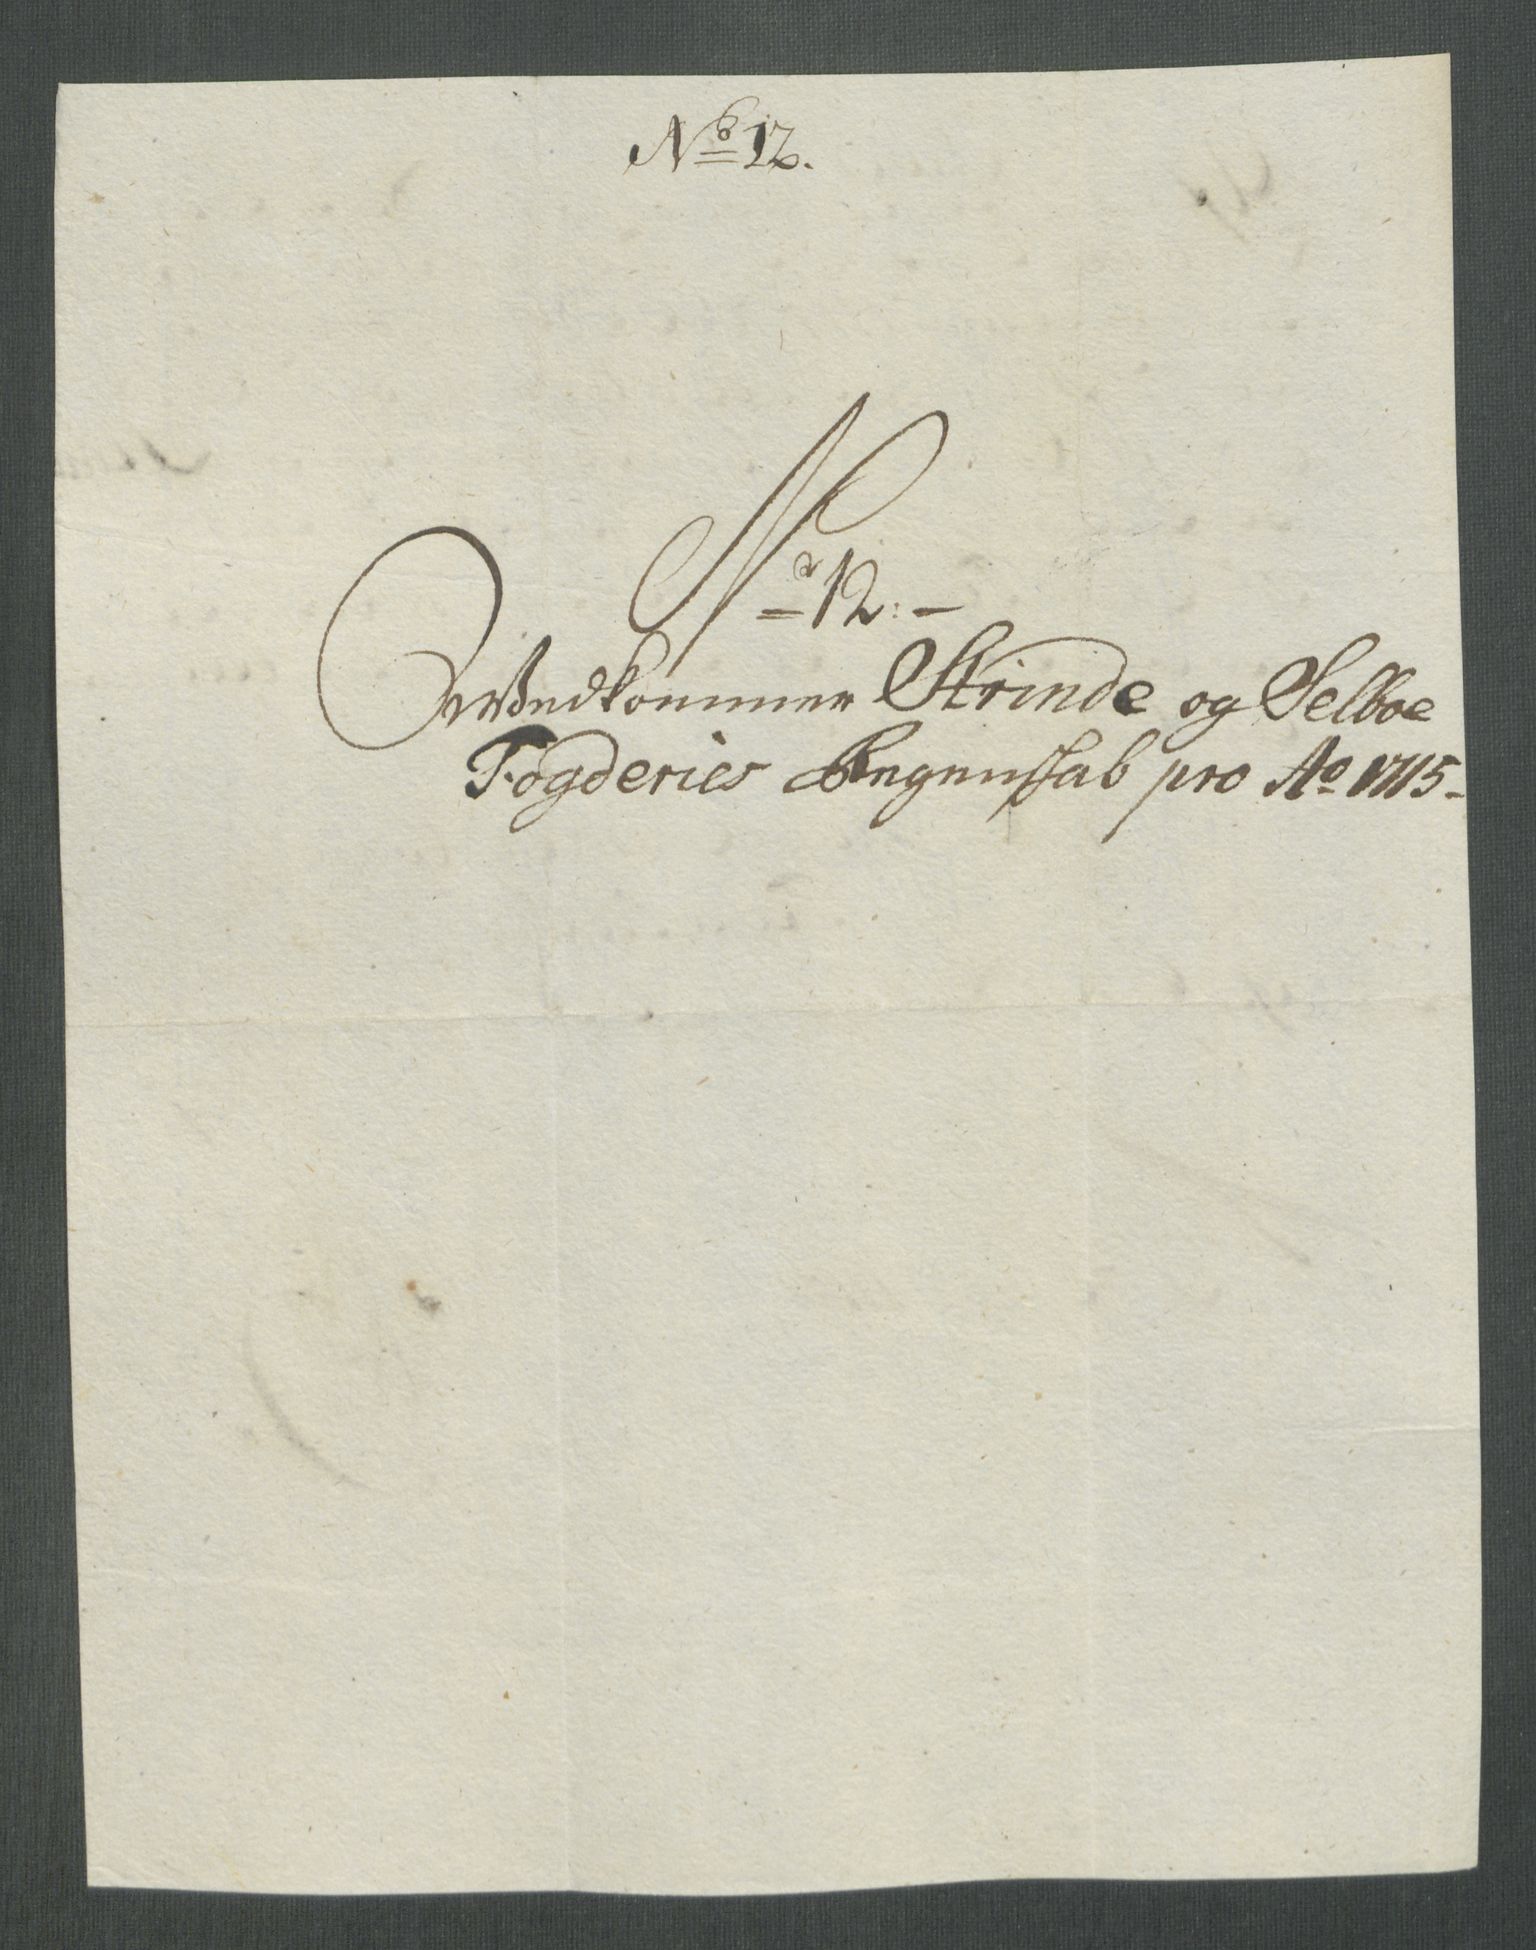 No 12.
No 12:-
Vedkommer Strinde og Selboe
Fogderies Regenskab pro Ao 1715-